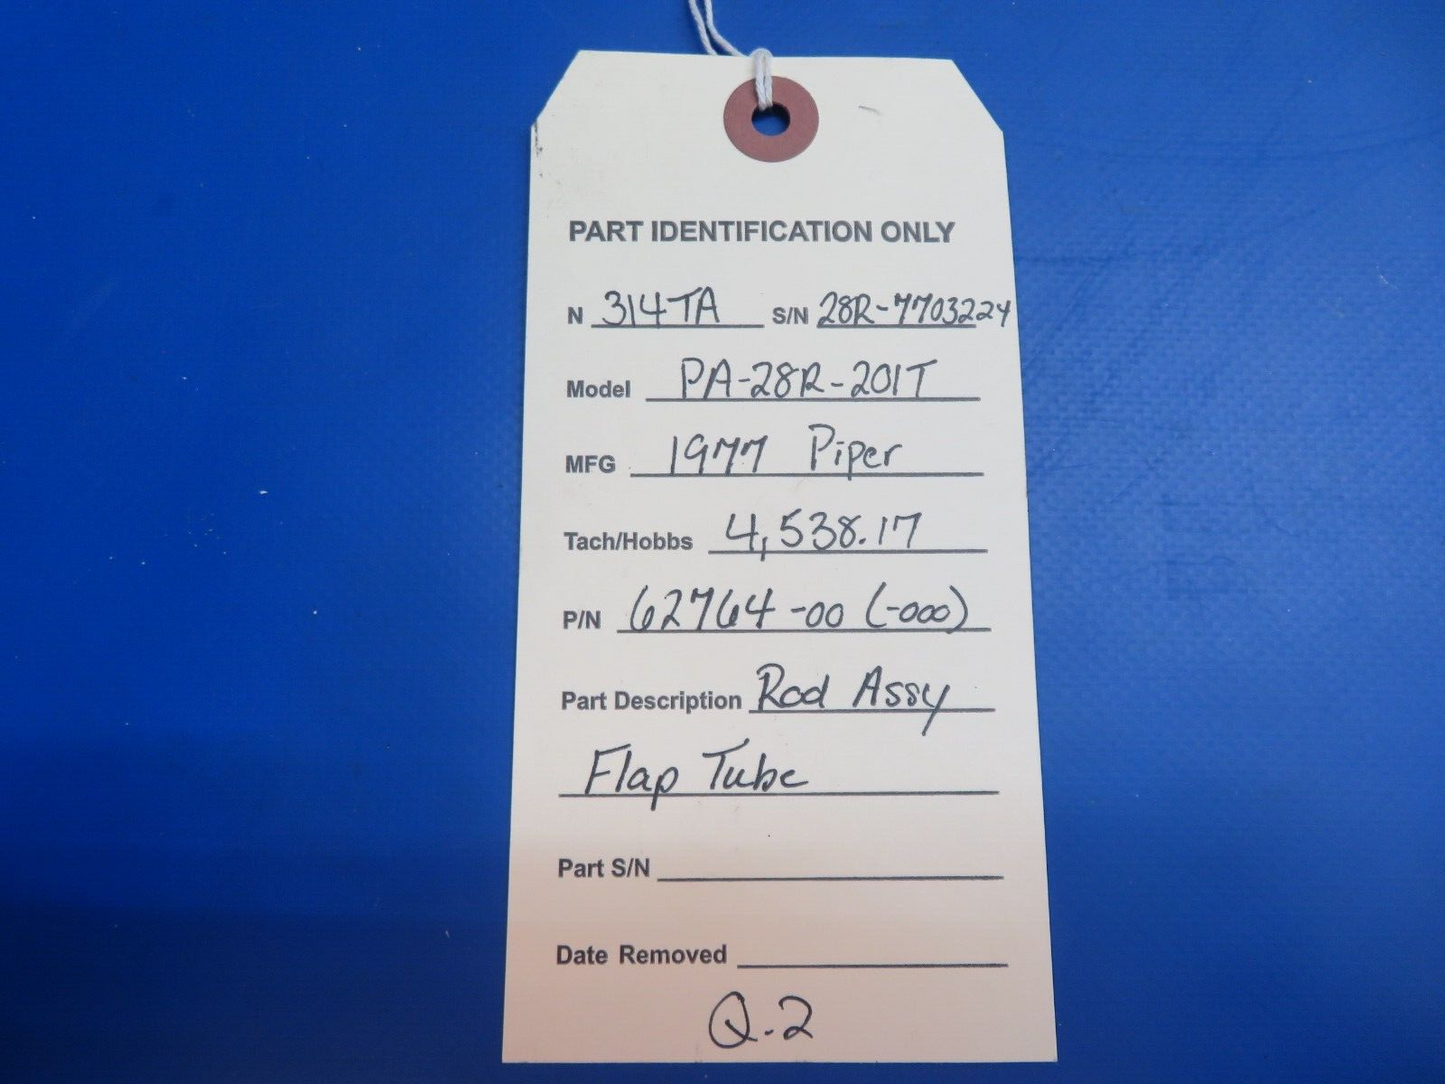 PART IDENTIFICATION ONLY
N 314TA S/N 28R-7703224
Model PA-28R-201T
MFG 1977 Piper
Tach/Hobbs 4,538.17
P/N 62764-00 (-000)
Part Description Rod Assy
Flap Tube
Part S/N
Date Removed
Q-2